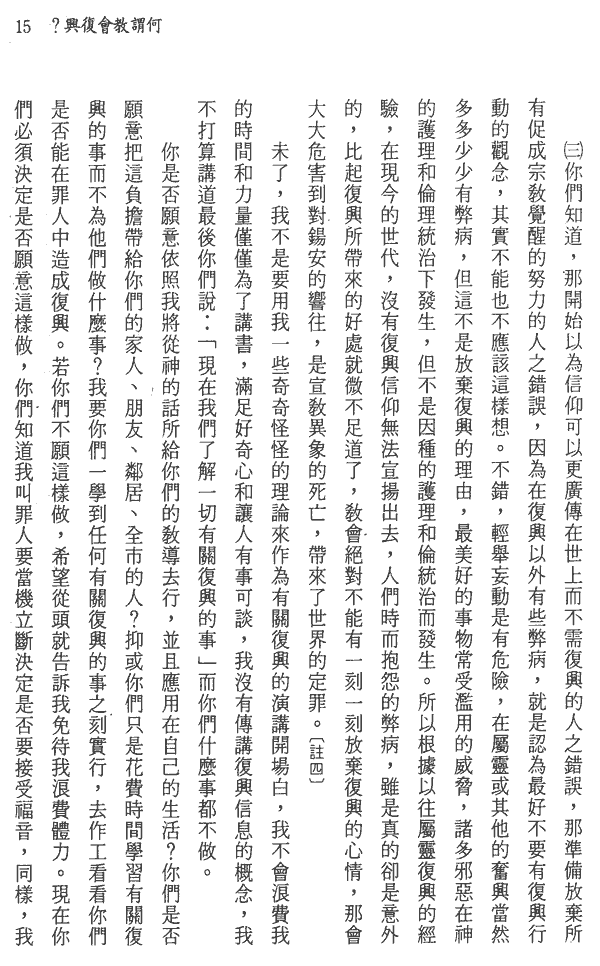 15　何謂教會復興？
㈢你們知道，那開始以為信仰可以更廣傳在世上而不需復興的人之錯誤，那準備放棄所
有促成宗教覺醒的努力的人之錯誤，因為在復興以外有些弊病，就是認為最好不要有復興行
動的觀念，其實不能也不應該這樣想。不錯，輕舉妄動是有危險，在屬靈或其他的奮興當然
多多少少有弊病，但這不是放棄復興的理由，最美好的事物常受濫用的威脅，諸多邪惡在神
的護理和倫理統治下發生，但不是因種的護理和倫統治而發生。所以根據以往屬靈復興的經
驗，在現今的世代，沒有復興信仰無法宣揚出去，人們時而抱怨的弊病，雖是真的卻是意外
的，比起復興所帶來的好處就微不足道了，教會絕對不能有一刻一刻放棄復興的心情，那會
大大危害到對錫安的響往，是宣教異象的死亡，帶來了世界的定罪。〔註四〕
未了，我不是要用我一些奇奇怪怪的理論來作為有關復興的演講開場白，我不會浪費我
的時間和力量僅僅為了講書，滿足好奇心和讓人有事可談，我沒有傳講復興信息的概念，我
不打算講道最後你們說：「現在我們了解一切有關復興的事」而你們什麼事都不做。
你是否願意依照我將從神的話所給你們的教導去行，並且應用在自己的生活？你們是否
願意把這負擔帶給你們的家人、朋友、鄰居、全市的人？抑或你們只是花費時間學習有關復
興的事而不為他們做什麼事？我要你們一學到任何有關復興的事之刻實行，去作工看看你們
是否能在罪人中造成復興。若你們不願這樣做，希望從頭就告訴我免待我浪費體力。現在你
們必須決定是否願意這樣做，你們知道我叫罪人要當機立斷決定是否要接受福音，同樣，我